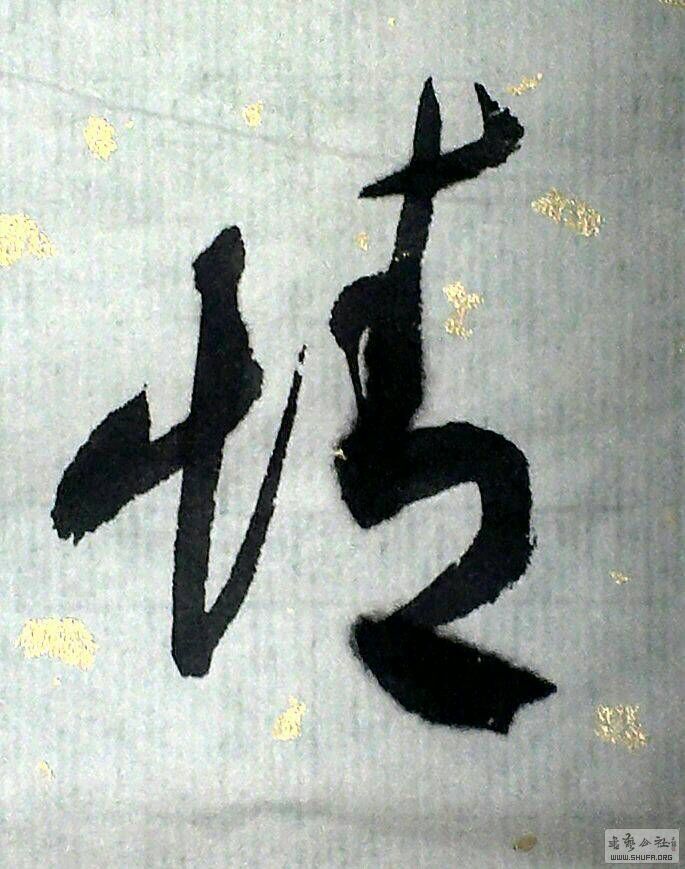 情
書藝公社
WWW.SHUFA.ORG